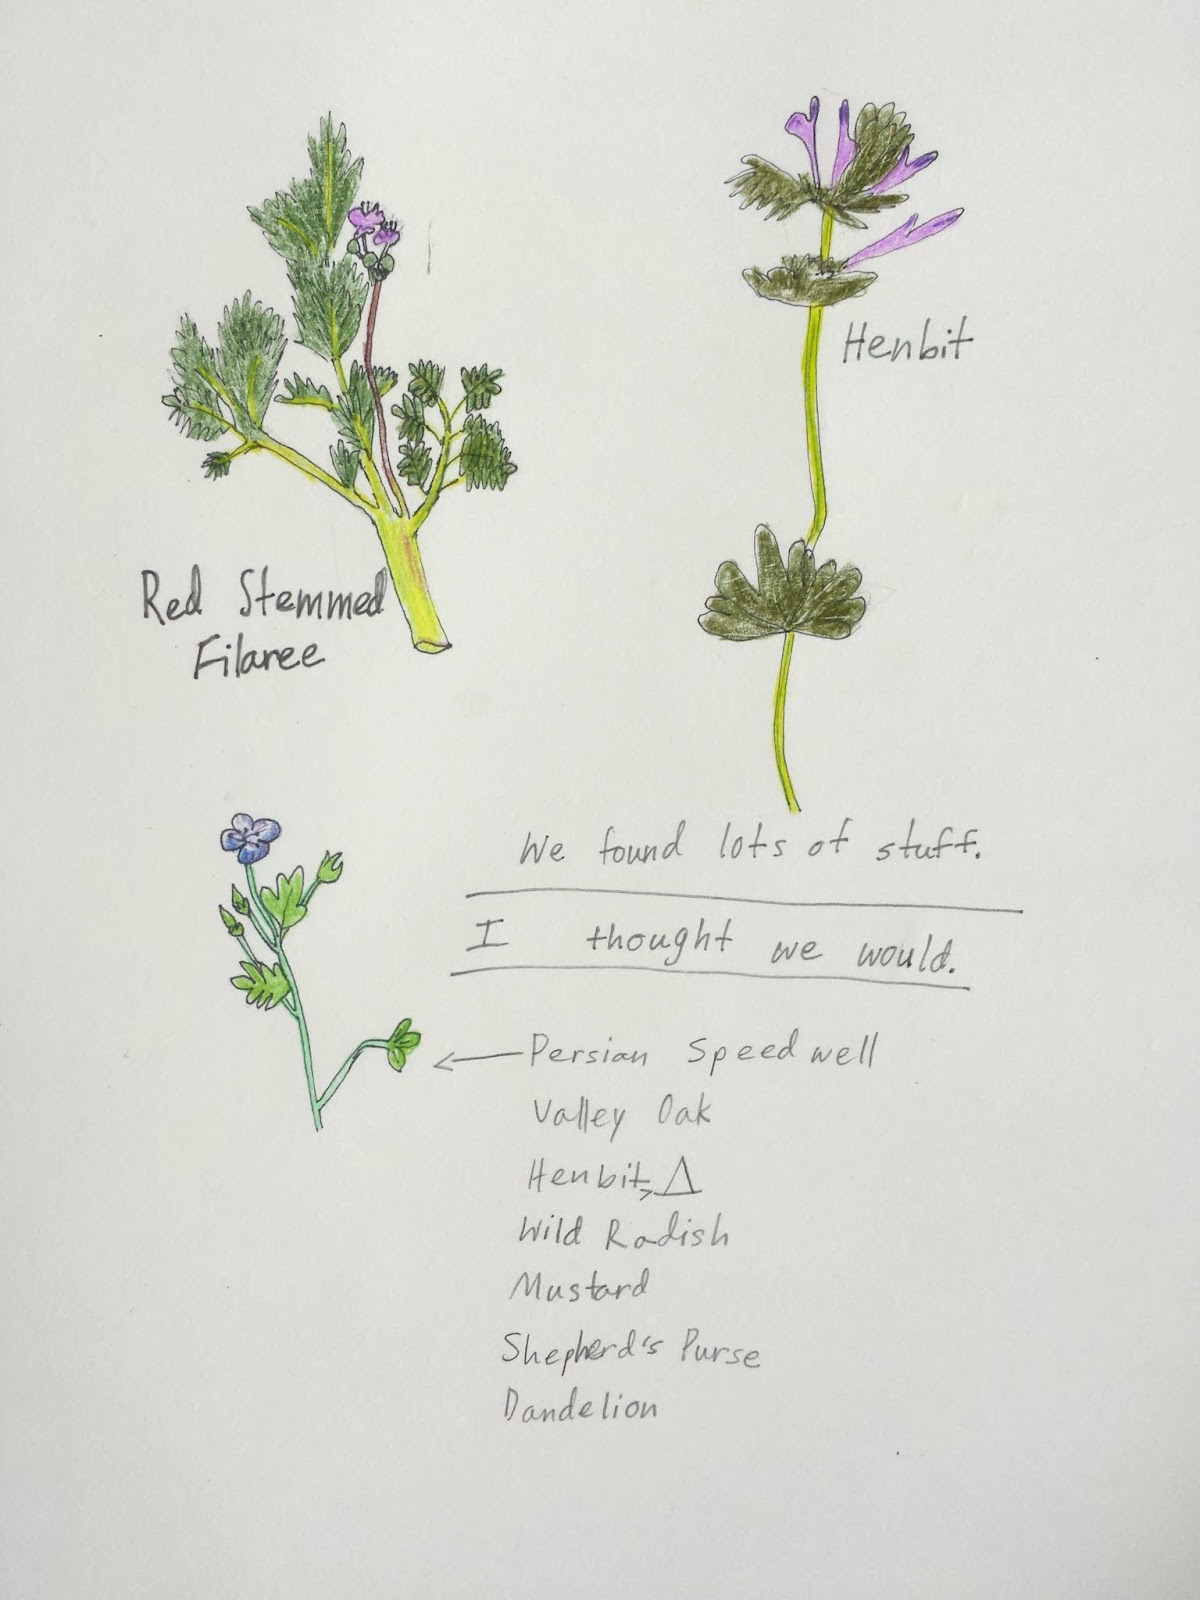 Henbit
Red Stemmed
Filaree
We found lots of stuff.
I thought we would.
Persian Speedwell
Valley Oak
Henbit
Wild Radish
Mustard
Shepherd's Purse
Dandelion